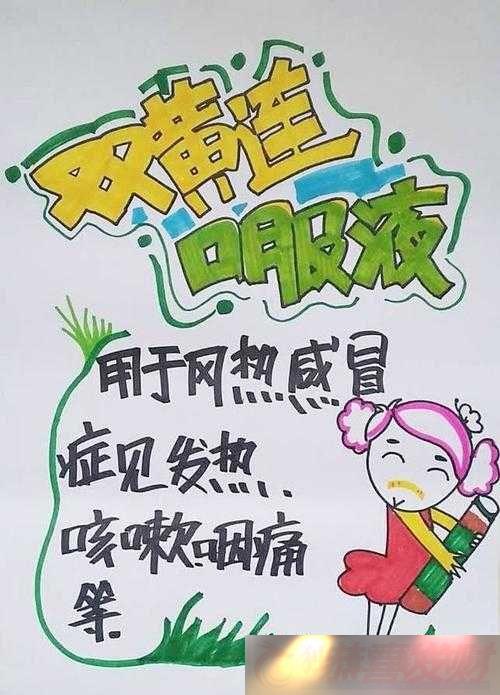 双黄连
口服液
用于风热感冒
症见发热.
咳嗽.咽痛
等.